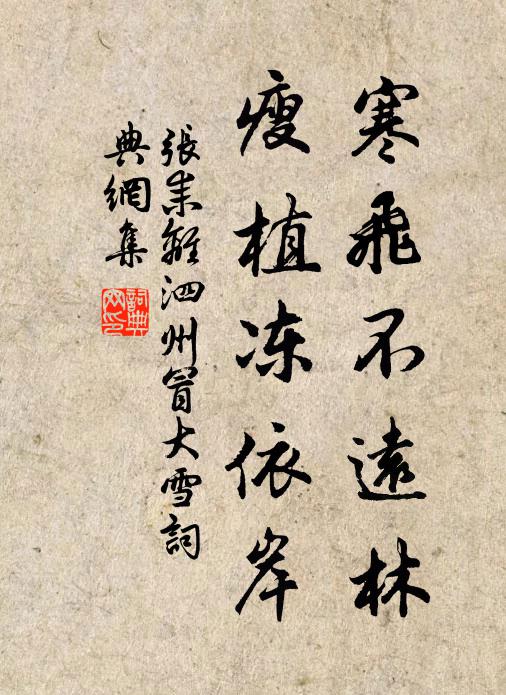 寒飛不遠林
瘦植冻依岸
張耒離泗州冒大雪詞
典網集
詞典
网印